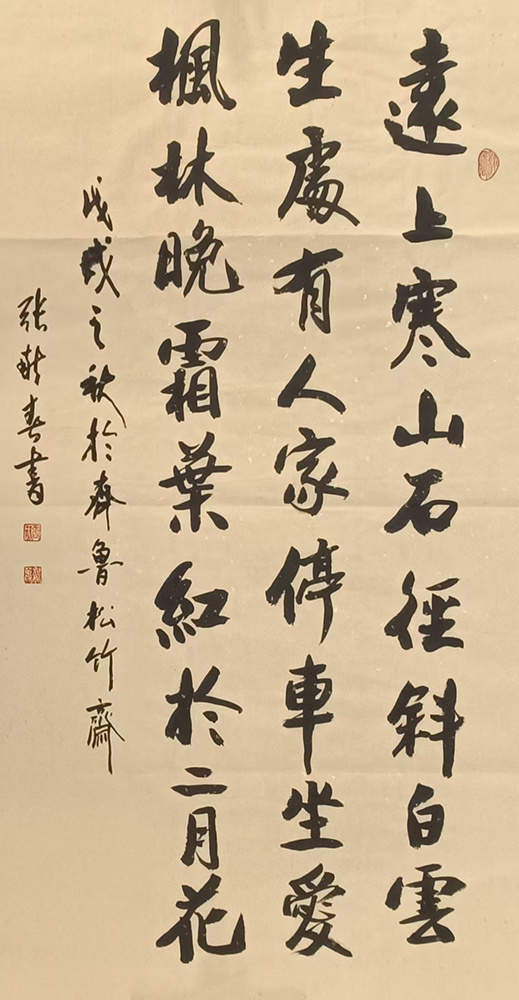 遠上寒山石徑斜白雲
生處有人家停車坐愛
楓林晚霜葉紅於二月花
戊戌之秋於齊魯松竹齋
張新春書